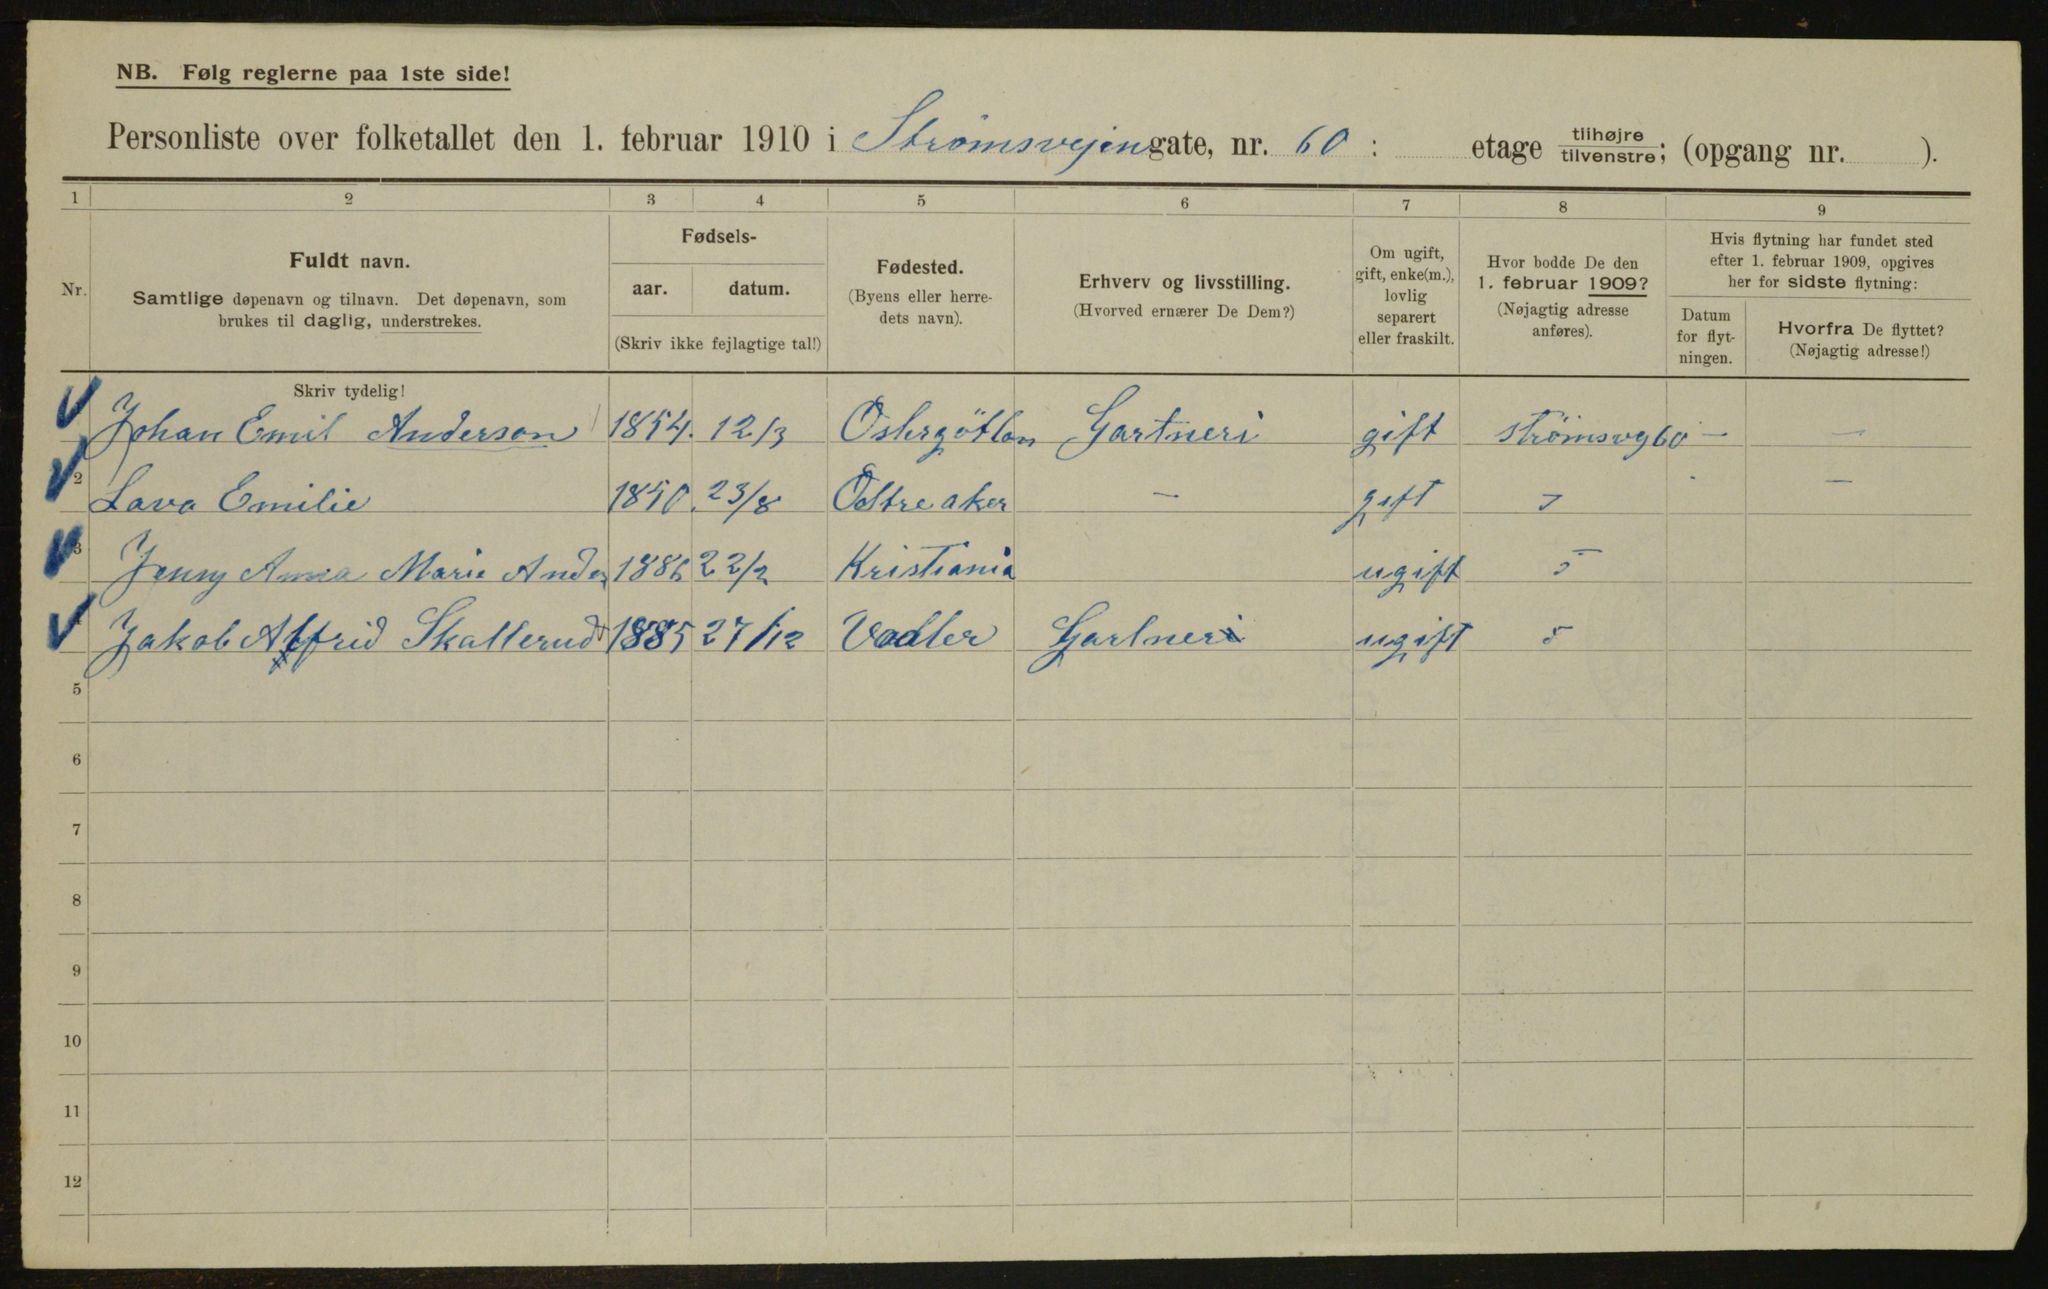 NB. Følg reglerne paa 1ste side!
Personliste over folketallet den 1. februar 1910 i Strømsvejen gate, nr. 60 : etage tilhøjre/tilvenstre; (opgang nr. ).
1 2 3 4 5 6 7 8 9
Nr.
Fuldt navn.
Samtlige døpenavn og tilnavn. Det døpenavn, som
brukes til daglig, understrekes.
Fødsels-
aar. datum.
(Skriv ikke fejlagtige tal!)
Fødested.
(Byens eller herre-
dets navn).
Erhverv og livsstilling.
(Hvorved ernærer De Dem?)
Om ugift,
gift, enke(m.),
lovlig
separert
eller fraskilt.
Hvor bodde De den
1. februar 1909?
(Nøjagtig adresse
anføres).
Hvis flytning har fundet sted
efter 1. februar 1909, opgives
her for sidste flytning:
Datum
for flyt-
ningen.
Hvorfra De flyttet?
(Nøjagtig adresse!)
Skriv tydelig!
Johan Emil Anderson 1854. 12/3 Gartneri gift strømsvg 60 — —
2 Lava Emilie 1850. 23/8 Östre aker — gift —
3 Jenny Anna Marie Ander 1886 22/2 Kristiania ugift
4 Jakob Alfrid Skallerud 1885 27/12 Vaaler Gartner ugift
5
6
7
8
9
10
11
12